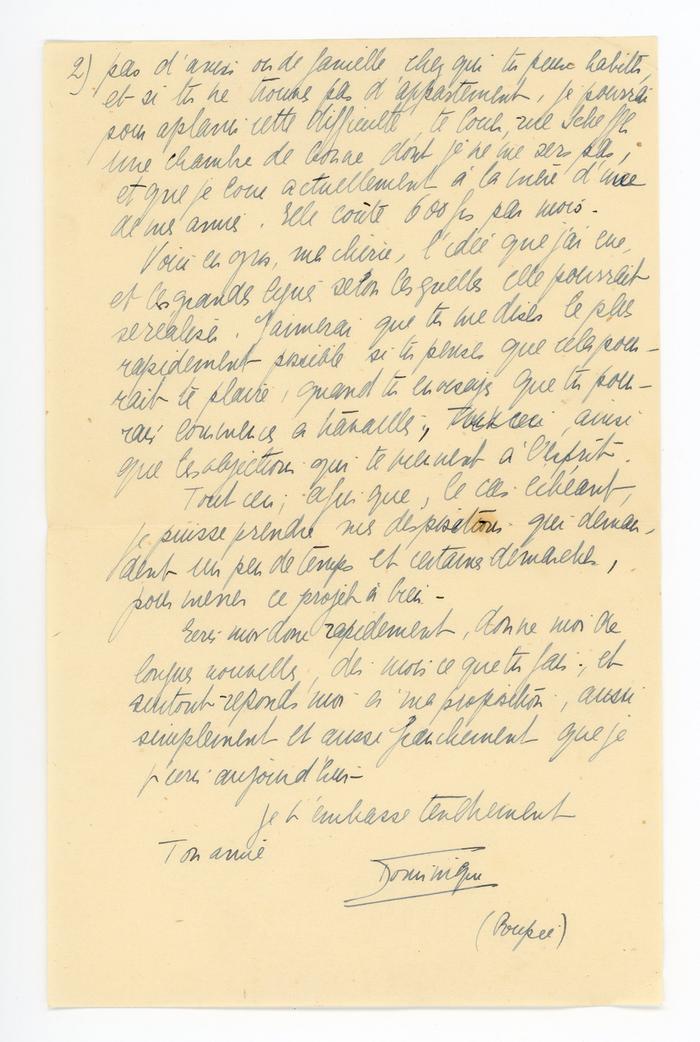 2) pas d'amis ou de famille chez qui tu peux habiter,
et si tu ne trouves pas d'appartement, je pourrai
pour aplanir cette difficulté, te louer, rue Scheffer
une chambre de bonne dont je ne me sers pas,
et que je loue actuellement à la mère d'une
de mes amies. Elle coûte 600 frs par mois.
Voici en gros, ma chérie, l'idée que j'ai eue,
et les grandes lignes selon lesquelles elle pourrait
se réaliser. J'aimerai que tu me dises le plus
rapidement possible si tu penses que cela pour-
rait te plaire, quand tu envisages que tu pour-
rais commencer à travailler, ainsi
que les objections qui te viennent à l'esprit.
Tout ceci, afin que, le cas échéant,
je puisse prendre mes dispositions qui deman-
dent un peu de temps et certaines démarches,
pour mener ce projet à bien -
Ecris moi donc rapidement, donne moi de
longues nouvelles, dis moi ce que tu fais, et
surtout réponds moi à ma proposition, aussi
simplement et aussi franchement que je
t'écris aujourd'hui -
Je t'embrasse tendrement
Ton amie
Dominique
(Poupée)